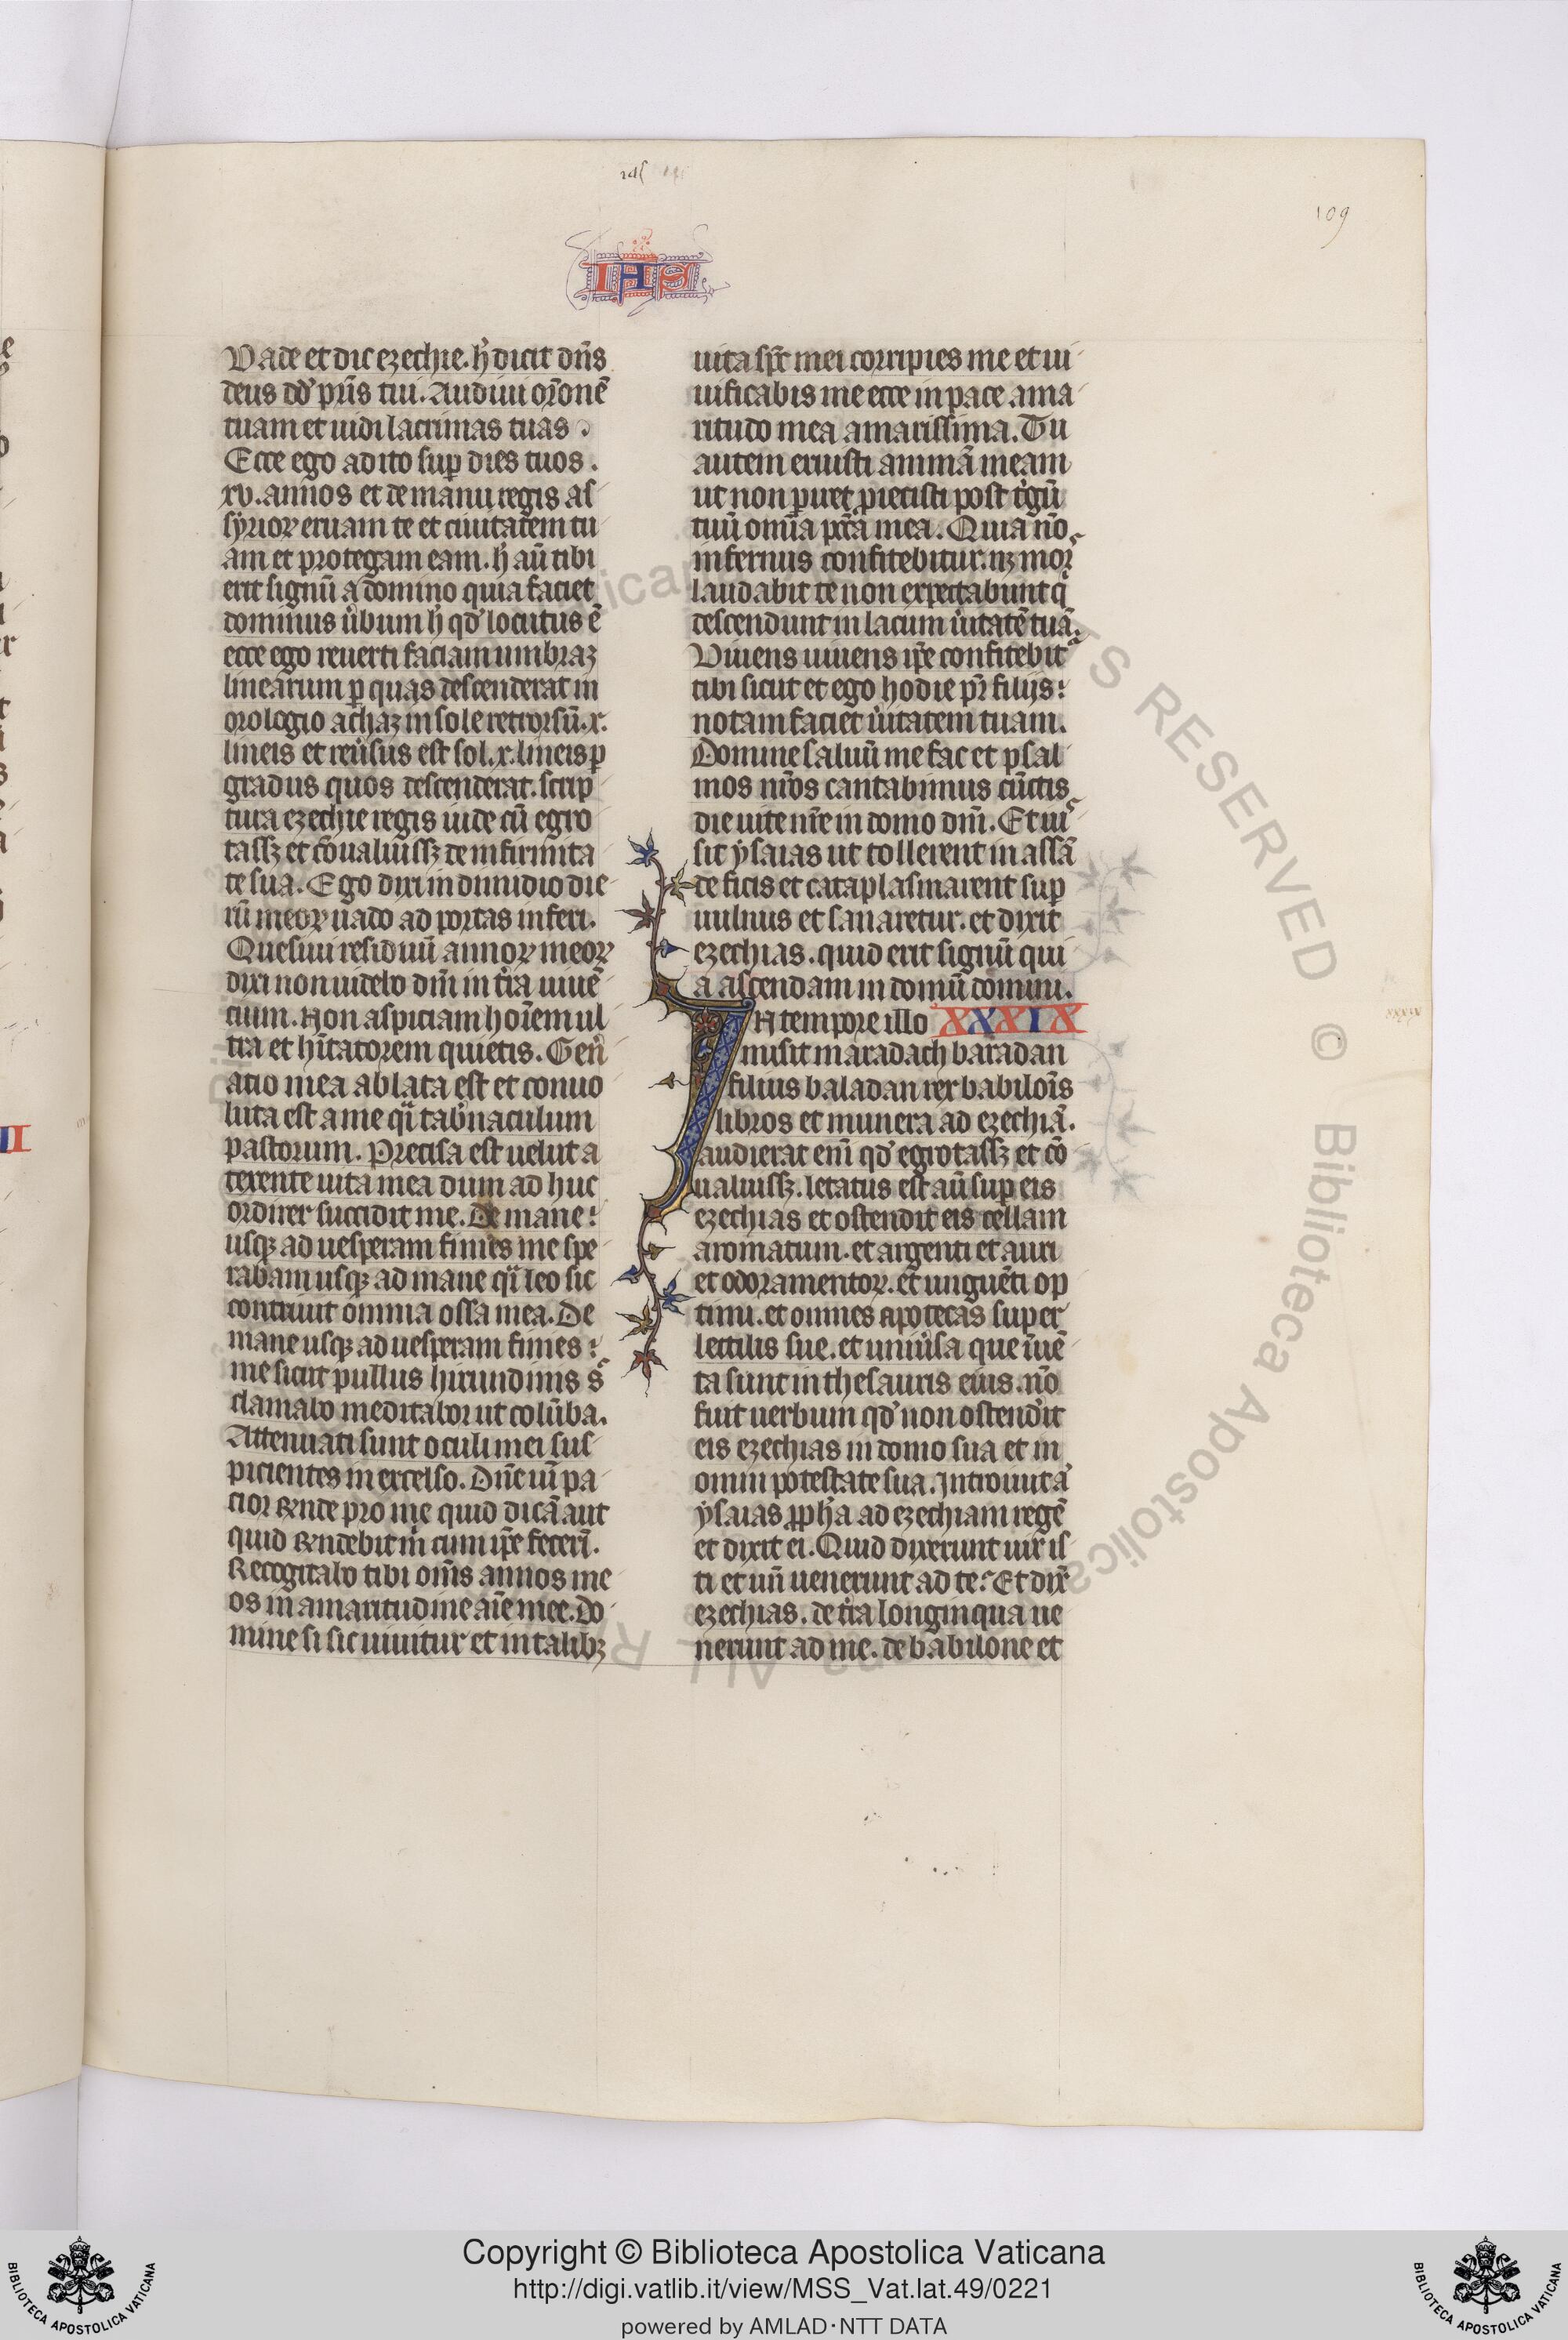 145
109
IHS
Uade et dic ezechie. h̓ dicit dñs
deus dd̓ pr̃is tui. Audiui or̃onẽ
tuam et uidi lacrimas tuas
Ecce ego adito suꝑ dies tuos.
xv. annos et de manu regis as
syrioꝝ eruam te et ciuitatem tu
am et protegam eam. h̓ aũ tibi
erit signũ a domino quia faciet
dominus u̓bum h̓ qđ locutus ẽ
ecce ego reuerti faciam umbraꝫ
linearum ꝑ quas descenderat in
orologio achaz in sole retrorsũ .x.
lineis et reu̓sus est sol .x. lineis ꝑ
gradus quos descenderat. scrip
tura ezechie regis iude cũ egro
tassꝫ et cõualuissꝫ de infirmita
te sua. Ego dixi in dimidio die
rũ meoꝝ uado ad portas inferi.
Quesiui residuũ annoꝝ meoꝝ
dixi non uidebo dñm in t̓ra uiuẽ
cium. Non aspiciam hoĩem ul
tra et hĩtatorem quietis. Gen̓
atio mea ablata est et conuo
luta est a me qͣi tab̓naculum
pastorum. Precisa est uelut a
texente uita mea dum ad huc
ordirer succidit me. De mane
usqꝫ ad uesperam finies me spe
rabam usqꝫ ad mane qͣi leo sic
contriuit omnia ossa mea. De
mane usqꝫ ad uesperam finies
me sicut pullus hirundinis s̓
clamabo meditabor ut colũba.
Attenuati sunt oculi mei sus
picientes in excelso. Dñe uĩ pa
tior Rnde pro me quid dicã aut
quid Rndebit m̓ cum ip̃e fecerĩ.
Recogitabo tibi om̃s annos me
os in amaritudine aĩe mee. Do
mine si sic uiuitur et in talibꝫ
uita sp̃c mei corripies me et ui
uificabis me ecce in pace ama
ritudo mea amarissima. Tu
autem eruisti animã meam
ut non ꝑiret proiecisti post t̓gũ
tuũ om̃ia pc̃c̃a mea. Quia nõ
infernus confitebitur. nꝫ mor
laudabit te non expectabunt q̓
descendunt in lacum u̓itatẽ tuã.
Uiuens uiuens ip̃e confitebit
tibi sicut et ego hodie pr̃ filijs
notam faciet u̓itatem tuam.
Domine saluũ me fac et psal
mos nr̃os cantabimus cũctis
die uite nr̃e in domo dñi. Et ui
sit ysaias ut tollerent in assã
de ficis et cataplasmarent suꝑ
uulnus et sanaretur. et dixit
ezechias. quid erit signũ qui
a ascendam in domũ domini.
IN tempore illo XXXIX
misit maradach baradan
filius baladan rex babiloĩs
libros et munera ad ezechiã.
audierat enĩ qđ egrotassꝫ et cõ
ualuissꝫ. letatus est aũ suꝑ eis
ezechias et ostendit eis cellam
aromatum. et argenti et auri
et odoramentoꝝ. et unguẽti op
timi. et omnes apotecas super
lectilis sue. et uniu̓sa que ĩuẽ
ta sunt in thesauris eius. nõ
fuit uerbum qđ non ostendit
eis ezechias in domo sua et in
omni potestate sua. Introiuit ã
ysaias ꝓpħa ad ezechiam regẽ
et dixit ei. Quid dixerunt uir is
ti et un̄ uenerunt ad te. Et dix̃
ezechias. de t̓ra longinqua ue
nerunt ad me. de babilone et
Copyright © Biblioteca Apostolica Vaticana
http://digi.vatlib.it/view/MSS_Vat.lat.49/0221
powered by AMLAD·NTT DATA
BIBLIOTECA APOSTOLICA VATICANA
BIBLIOTECA APOSTOLICA VATICANA